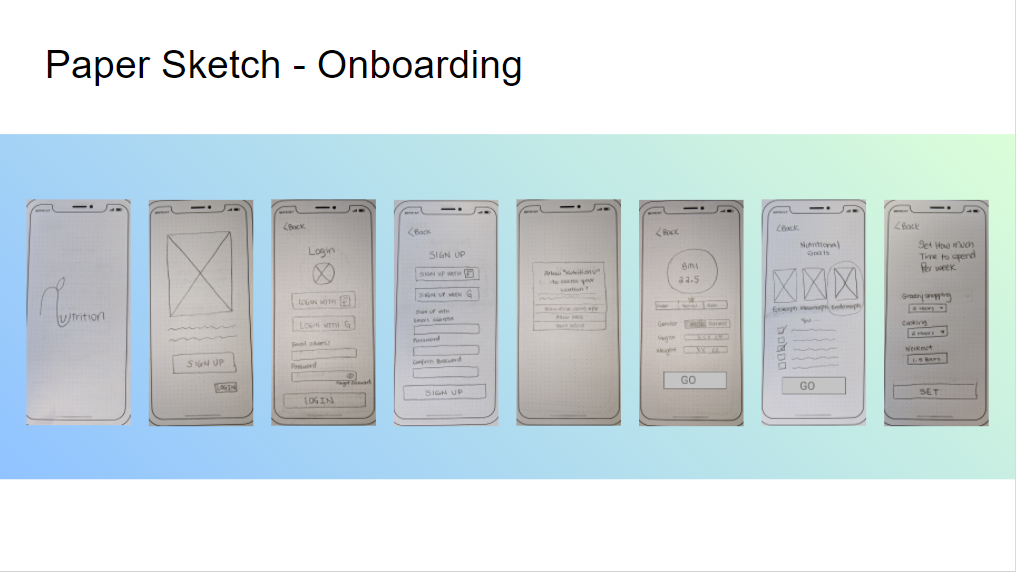 Paper Sketch - Onboarding
Nutrition
SIGN UP
LOGIN
<Back
Login
LOGIN WITH F
LOGIN WITH G
Email address
Password
Forgot Password
LOGIN
<Back
SIGN UP
SIGN UP WITH F
SIGN UP WITH G
SIGN UP WITH
Email Address
Password
Confirm Password
SIGN UP
Allow "Nutrition U"
to access your
location?
<Back
BMI
22.5
Gender
Height
Weight
GO
<Back
Nutritional
Goals
Ectomorph Mesomorph Endomorph
GO
<Back
Set How much
Time to spend
Per week
Grocery shopping
2 Hours
Cooking
2 Hours
Workout
1.5 Hours
SET